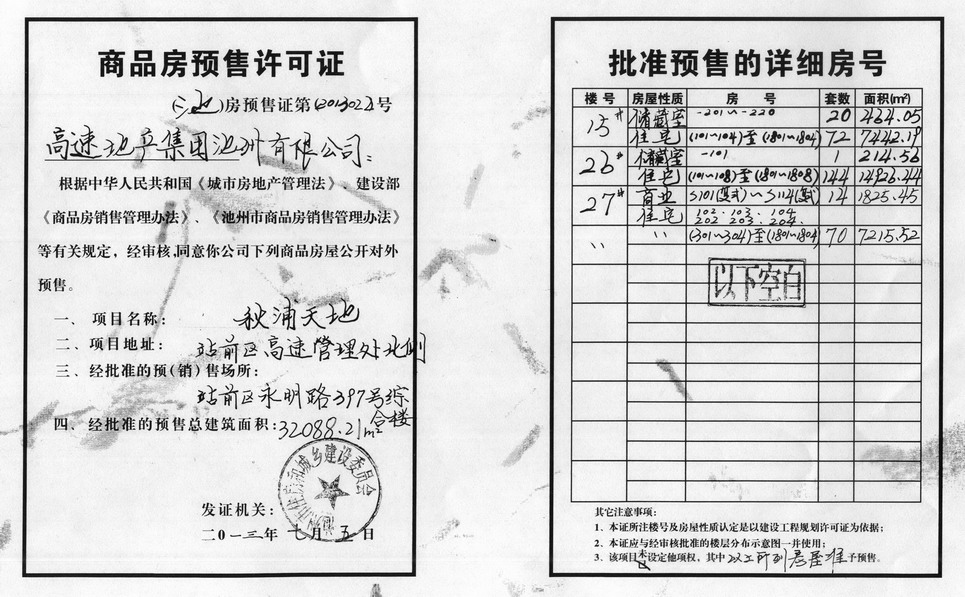 商品房预售许可证
(池)房预售证第(2013022)号
高速地产集团池州有限公司:
根据中华人民共和国《城市房地产管理法》、建设部
《商品房销售管理办法》、《池州市商品房销售管理办法》
等有关规定,经审核,同意你公司下列商品房屋公开对外
预售。
一、项目名称: 秋浦天地
二、项目地址: 站前区高速管理处北侧
三、经批准的预(销)售场所:
站前区永明路397号综
合楼
四、经批准的预售总建筑面积:32088.21m²
池州市住房和城乡建设委员会
发证机关:
二0一三年七月五日
批准预售的详细房号
楼号 房屋性质 房号 套数 面积(m²)
15# 储藏室 -201~-220 20 434.05
住宅 (101~104)至(1801~1804) 72 7442.19
26# 储藏室 -101 1 214.56
住宅 (101~108)至(1801~1808) 144 14926.44
27# 商业 S101(复式)~S114(复式) 14 1825.45
住宅 102.103.104.
202 203.204.
〃 〃 (301~304)至(1801~1804) 70 7215.52
以下空白
其它注意事项:
1、本证所注楼号及房屋性质认定是以建设工程规划许可证为依据;
2、本证应与经审核批准的楼层分布示意图一并使用;
3、该项目未设定他项权,其中以上所列房屋准予预售。